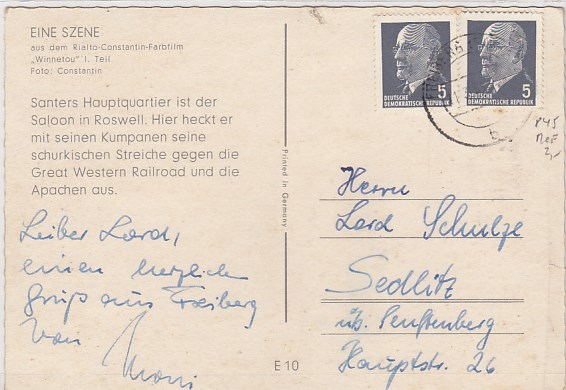 EINE SZENE
aus dem Rialto-Constantin-Farbfilm
„Winnetou" I. Teil
Foto: Constantin
Santers Hauptquartier ist der
Saloon in Roswell. Hier heckt er
mit seinen Kumpanen seine
schurkischen Streiche gegen die
Great Western Railroad und die
Apachen aus.
Leiber Lord,
einen herzlichen
Gruß aus Freiberg
von
Printed in Germany
E 10
5
DEUTSCHE
DEMOKRATISCHE REPUBLIK
5
DEUTSCHE
DEMOKRATISCHE REPUBLIK
b
Herrn
Lord Schulze
Sedlitz
üb. Senftenberg
Hauptstr. 26